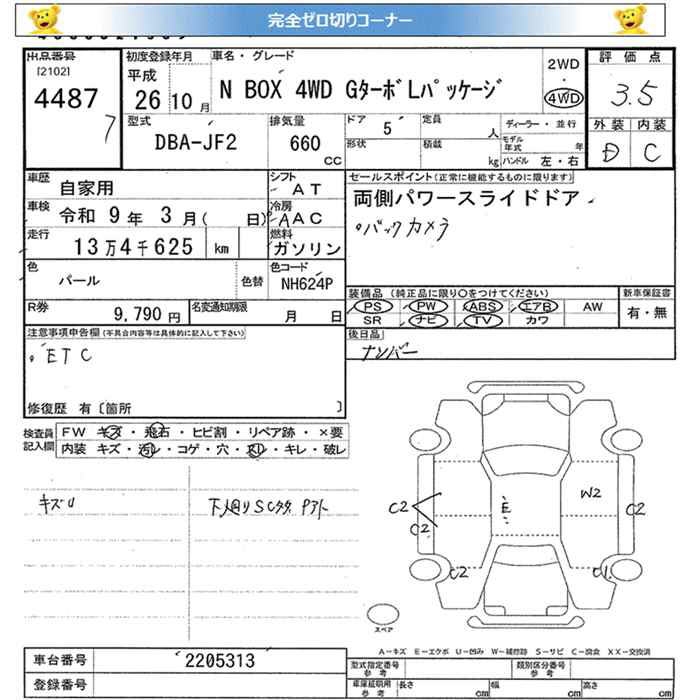 完全ゼロ切りコーナー
出品番号 初度登録年月 車名・グレード 評価点
[2102] 平成 2WD
4487 26 10月 N BOX 4WD GターボLパッケージ ・ 3.5
7 4WD
型式 排気量 ドア 5 定員 人 ディーラー・並行 外装 内装
DBA-JF2 660 CC 形状 積載 kg モデル年式 年 D C
ハンドル 左・右
車歴 自家用 シフト AT セールスポイント(正常に機能するものに限ります)
車検 令和 9年 3月( 日) 冷房 AAC 両側パワースライドドア
走行 13万4千625 km 燃料 ガソリン バックカメラ
色 パール 色替 色コード NH624P
装備品(純正品に限り○をつけてください) 新車保証書
R券 9,790円 名変通知期限 月 日 PS PW ABS エアB AW 有・無
SR ナビ TV カワ
注意事項申告欄(不具合内容等は具体的に記入して下さい) 後日品
。ETC ナンバー
修復歴 有〔箇所 〕
検査員記入欄 FW キズ・飛石・ヒビ割・リペア跡・×要
内装 キズ・汚レ・コゲ・穴・スレ・キレ・破レ
キズU 下廻りSCクタ Pアト
W2
C2 E C2
C2
C2 C1
スペア
A-キズ E-エクボ U-凹み W-補修跡 S-サビ C-腐食 XX-交換済
車台番号 2205313 型式指定番号 参考 類別区分番号 参考
登録番号 車庫証明用 参考 長さ cm 幅 cm 高さ cm